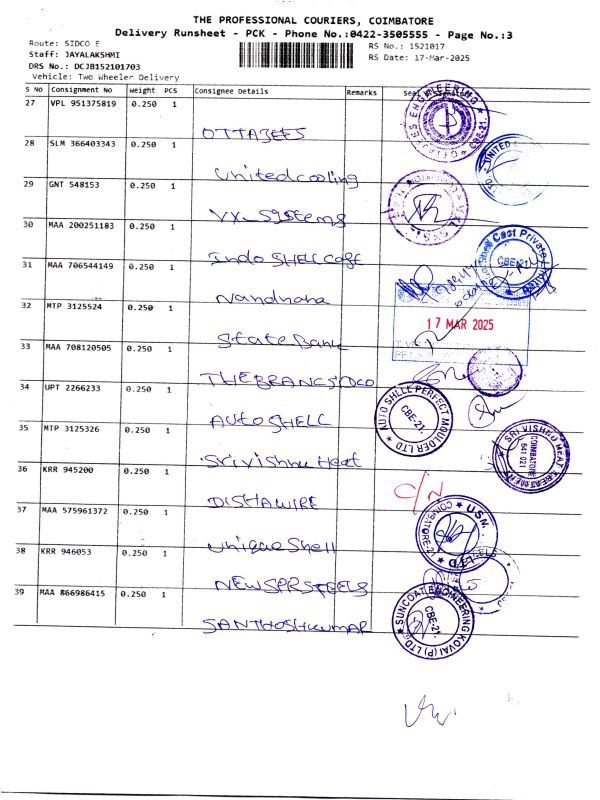 THE PROFESSIONAL COURIERS, COIMBATORE
Delivery Runsheet - PCK - Phone No.:0422-3505555 - Page No.:3
Route: SIDCO E RS No.: 1521017
Staff: JAYALAKSHMI RS Date: 17-Mar-2025
DRS No.: DCJB152101703
Vehicle: Two Wheeler Delivery
S No Consignment No Weight PCS Consignee Details Remarks
27 VPL 951375819 0.250 1
OTTAJEES
28 SLM 366403343 0.250 1
united cooling
29 GNT 548153 0.250 1
VX-Systems
30 MAA 200251183 0.250 1
Indo SHELL Cast
31 MAA 706544149 0.250 1
Nandhana
32 MTP 3125524 0.250 1
State Bank
17 MAR 2025
33 MAA 708120505 0.250 1
34 UPT 2266233 0.250 1
AUTO SHELL
AUTO SHLLE PERFECT MOULDER LTD
CBE-21.
35 MTP 3125326 0.250 1
Srivishnu Heat
SRI VISHNU HEAT TREATMENT
COIMBATORE
641 021
36 KRR 945200 0.250 1
DISHAWIRE
37 MAA 575961372 0.250 1
unique Shell
38 KRR 946053 0.250 1
NEWSPRSTEELS
39 MAA 866986415 0.250 1
SANTHOSHKUMAR
SUNCOAT ENGINEERING KOVAI (P) LTD
CBE-21.